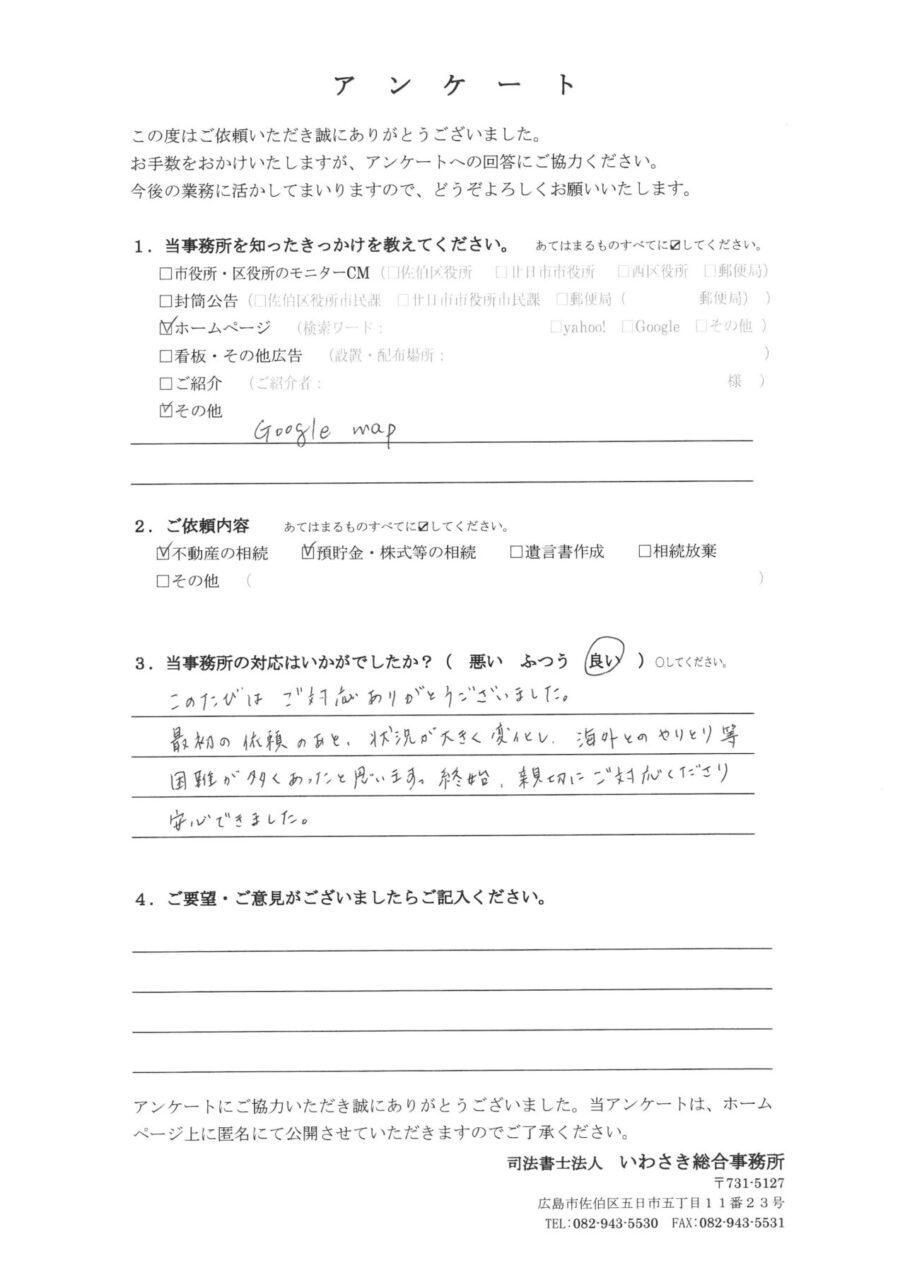 アンケート
この度はご依頼いただき誠にありがとうございました。
お手数をおかけいたしますが、アンケートへの回答にご協力ください。
今後の業務に活かしてまいりますので、どうぞよろしくお願いいたします。
１．当事務所を知ったきっかけを教えてください。 あてはまるものすべてに☑してください。
□市役所・区役所のモニターCM（□佐伯区役所 □廿日市市役所 □西区役所 □郵便局）
□封筒公告（□佐伯区役所市民課 □廿日市市役所市民課 □郵便局（ 郵便局））
☑ホームページ （検索ワード： □yahoo! □Google □その他）
□看板・その他広告 （設置・配布場所： ）
□ご紹介 （ご紹介者： 様 ）
☑その他
Google map
２．ご依頼内容 あてはまるものすべてに☑してください。
☑不動産の相続 ☑預貯金・株式等の相続 □遺言書作成 □相続放棄
□その他 （ ）
３．当事務所の対応はいかがでしたか？（ 悪い ふつう 良い ）○してください。
このたびは ご対応ありがとうございました。
最初の依頼のあと、状況が大きく変化し、海外とのやりとり等
困難が多くあったと思います。終始、親切にご対応くださり
安心できました。
４．ご要望・ご意見がございましたらご記入ください。
アンケートにご協力いただき誠にありがとうございました。当アンケートは、ホーム
ページ上に匿名にて公開させていただきますのでご了承ください。
司法書士法人 いわさき総合事務所
〒731-5127
広島市佐伯区五日市五丁目１１番２３号
TEL:082-943-5530 FAX:082-943-5531